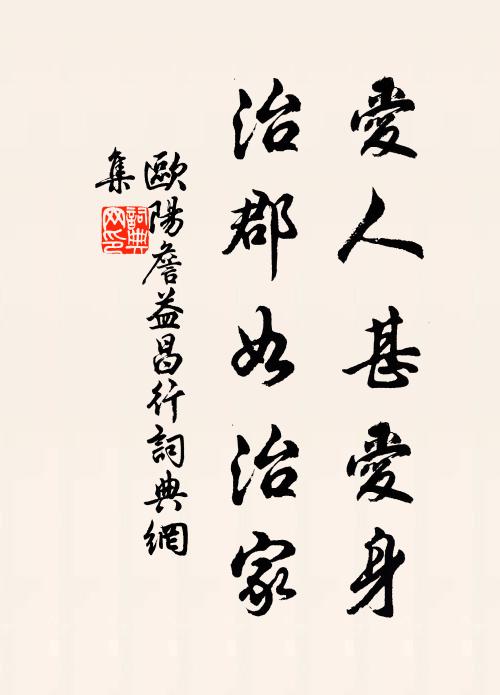 愛人甚愛身
治郡如治家
歐陽詹益昌行詞典網
集
詞典
网印